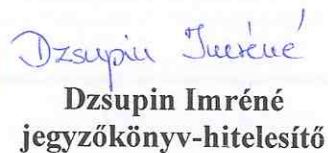 Dzsupin Imréné
Dzsupin Imréné
jegyzőkönyv-hitelesítő